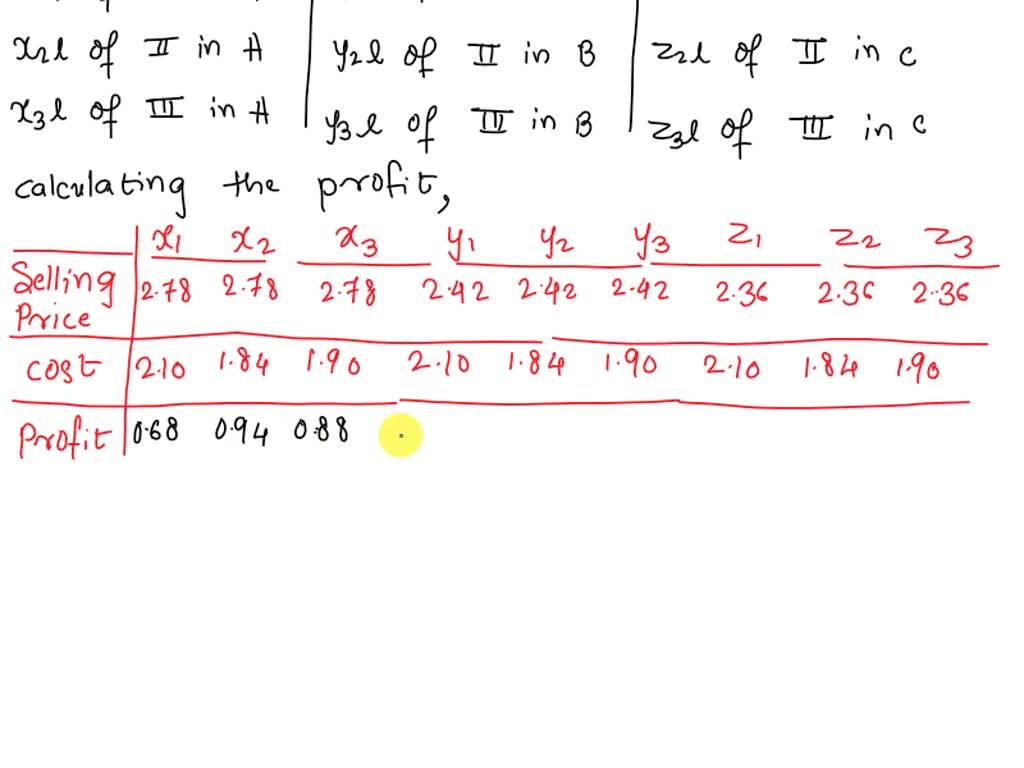 x2l of II in A | y2l of II in B | z2l of II in C
x3l of III in A | y3l of III in B | z3l of III in C
calculating the profit,
x1 x2 x3 y1 y2 y3 z1 z2 z3
Selling Price 2.78 2.78 2.78 2.42 2.42 2.42 2.36 2.36 2.36
cost 2.10 1.84 1.90 2.10 1.84 1.90 2.10 1.84 1.90
Profit 0.68 0.94 0.88 .